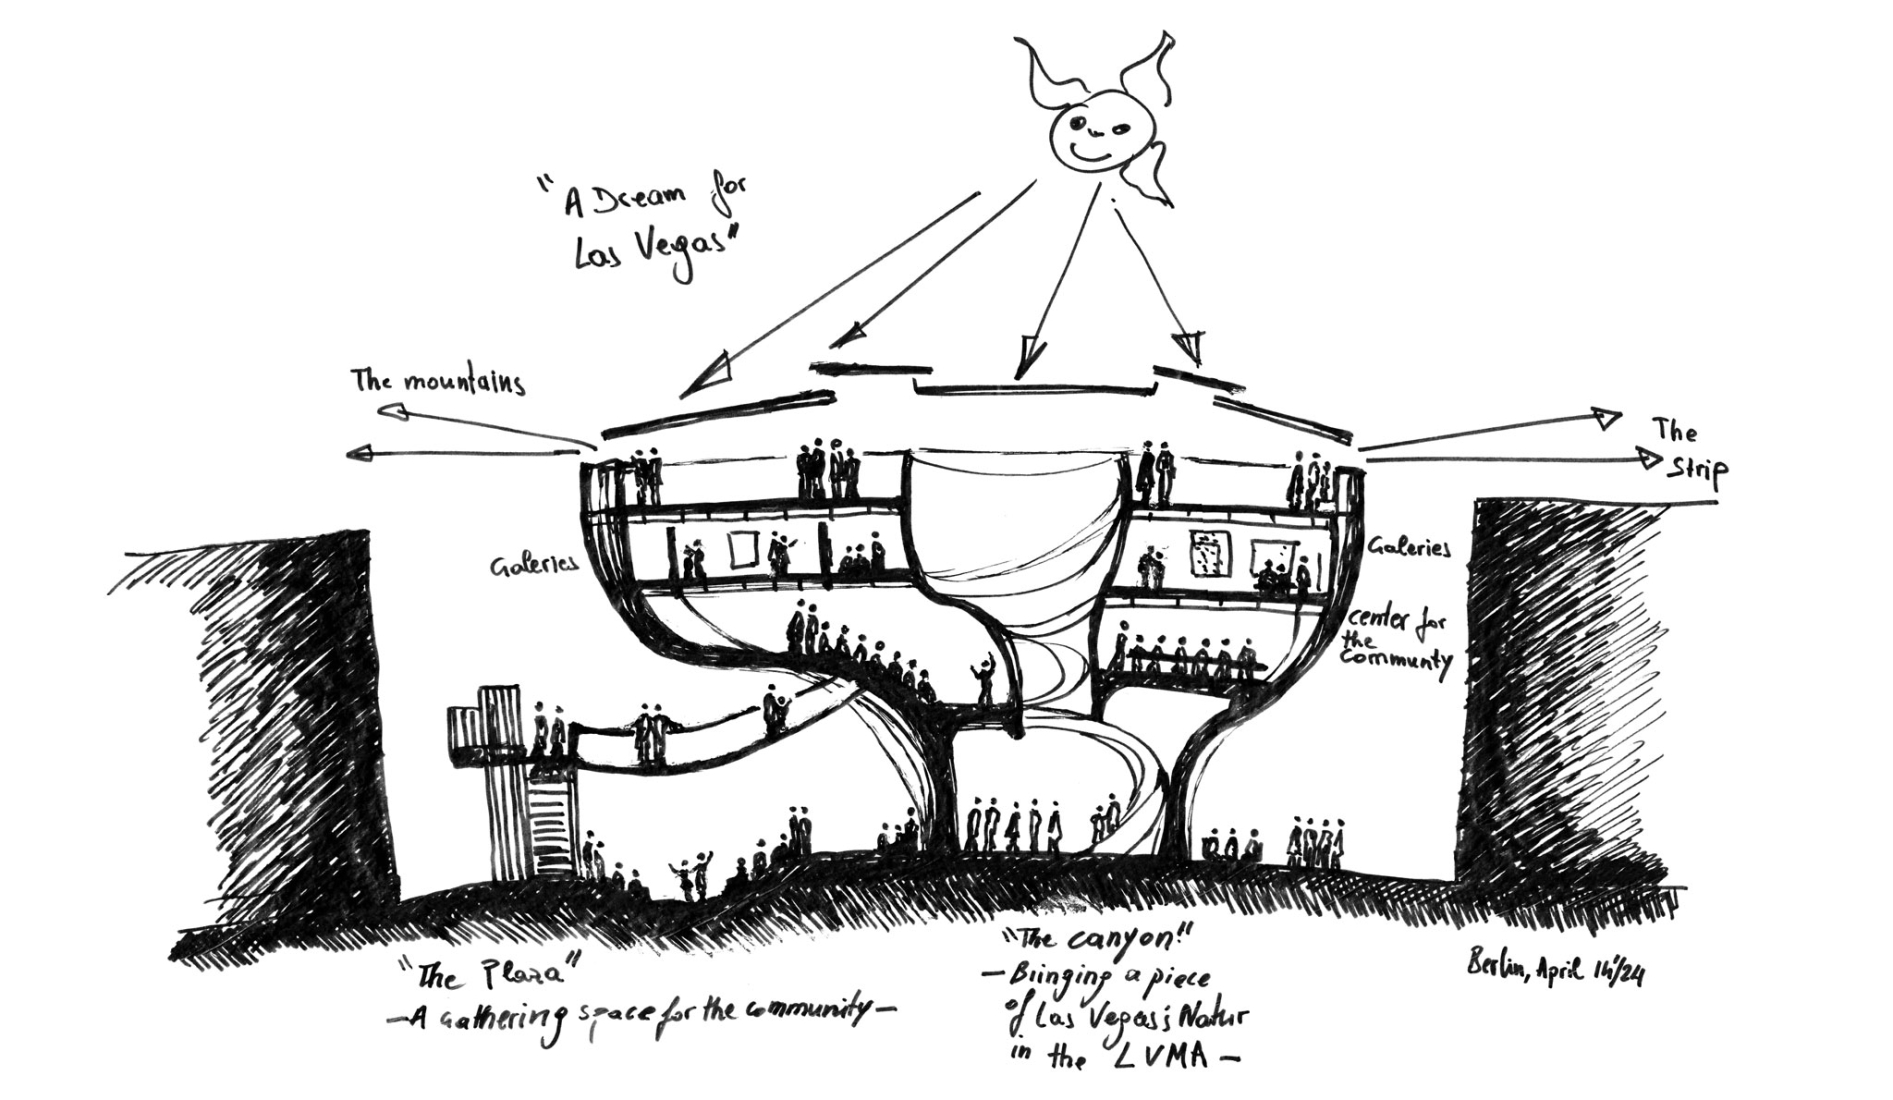 "A Dream for
Las Vegas"
The mountains
The
Strip
Galeries
Galeries
center for
the
Communty
"The Plaza"
—A Gathering space for the community—
"The canyon"
— Briinging a piece
of Las Vegas's Natur
in the LVMA —
Berlin, April 14'/24